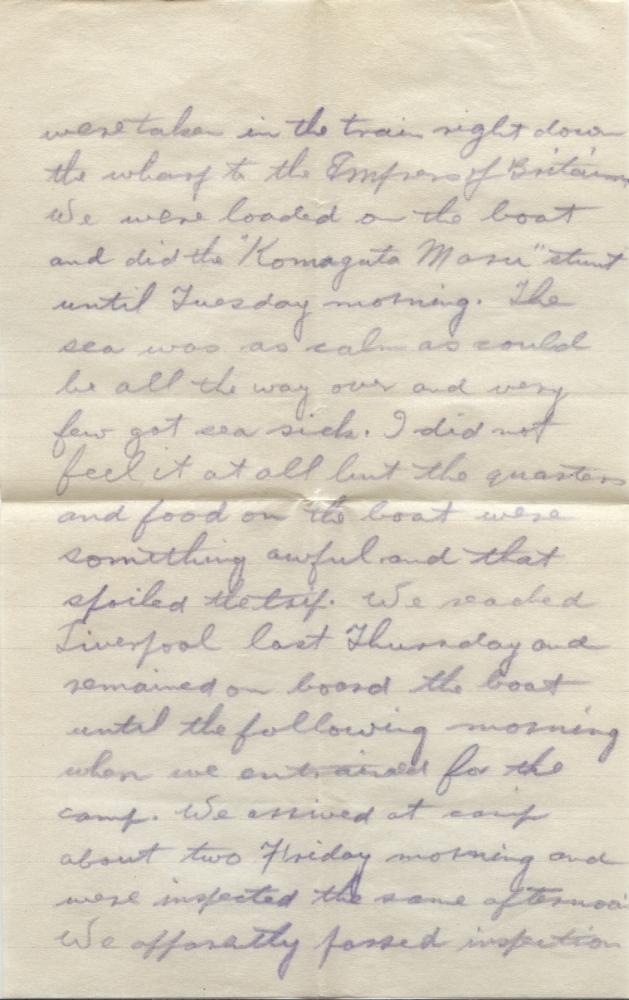 were taken in the train right down
the wharf to the Empress of Britain.
We were loaded on the boat
and did the "Komagata Maru" stunt
until Tuesday morning. The
sea was as calm as could
be all the way over and very
few got sea sick. I did not
feel it at all but the quarters
and food on the boat were
something awful and that
spoiled the trip. We reached
Liverpool last Thursday and
remained on board the boat
until the following morning
when we entrained for the
camp. We arrived at camp
about two Friday morning and
were inspected the same afternoon
We apparently passed inspection